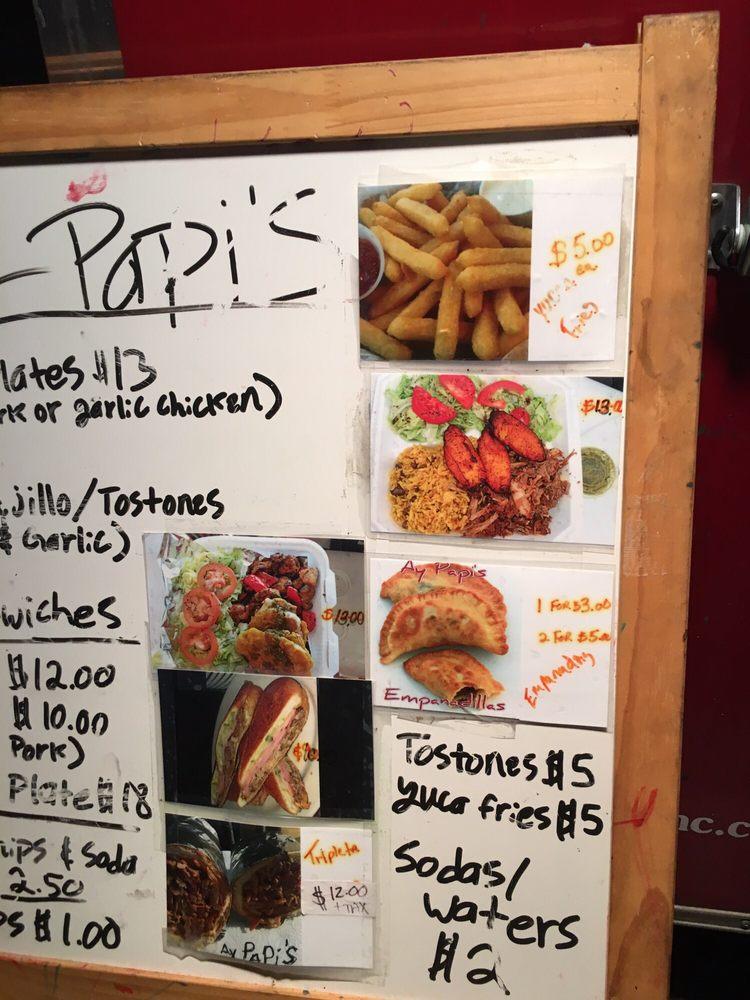 Papi's
lates $13
rk or garlic chicken)
jillo/Tostones
& Garlic)
wiches
$12.00
$10.00
Pork)
Plate $18
ips & Soda
2.50
ps $1.00
$5.00
ea
yuca
fries
$13.0
$13.00
Ay Papi's
1 FOR $3.00
2 FOR $5.00
Empanadillas
Tripleta
$12.00
+ TAX
Ay PAPi'S
Tostones $5
yuca fries $5
Sodas/
waters
$2
nc.c